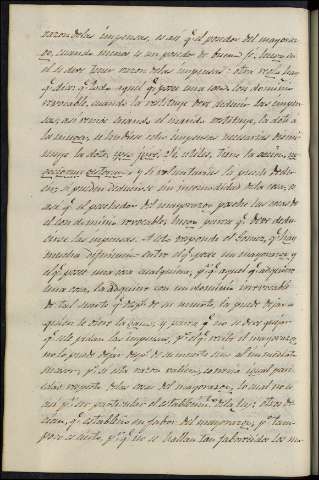 razon de las impensas, es asi q.e el poseedor del mayoraz-
go, cuando menos es un poseedor de buena fé, luego en
el se debe tener razon de las impensas: otra regla hay
q.e dice q.e todo aquel q.e posee una cosa con dominio
revocable, cuando la restituye debe deducir las impen-
sas, asi vemos cuando el marido restituye, la dote á
la muger, se hubiese echo impensas necesarias dismi-
nuye la dote, ipso jure. Si utiles, tiene la accion,
y si voluntarias las puede dedu-
cir si pueden deducirse sin incomodidad de la cosa, es
asi q.e el poseedor del mayorazgo posehe las cosas de
el con dominio revocable; luego parece q.e debe dedu-
cirse las impensas. A esto responde el Gomez, q.e hay
mucha diferencia entre el q.e posee un mayorazgo y
el q.e posee una cosa cualquiera, p.r q.e aquel q.e adquiere
una cosa, la adquiere con un dominio irrevocable
de tal suerte q.e desp.s de su muerte, la puede dejar a
quien le diere la gana, y parece q.e no se debe quejar
q.e no le pidan las impensas, p.r el q.e recibe el mayorazgo
no lo puede dejar desp.s de su muerte sino al inmediato
sucesor, p.r q.e esta razon
respecto de las cosas del mayorazgo, lo cual no es
asi p.r ser particular el establecim.to de la ley: otros di-
cen, q.e establecio en favor del mayorazgo, y tam-
poco es cierto, p.r q.e no se hallan tan favorecidos los ma-